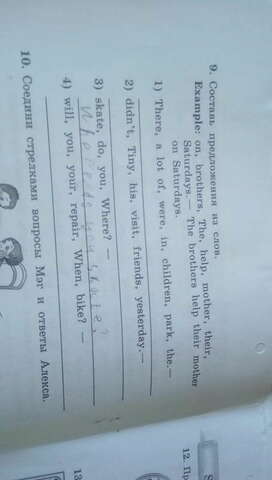 9. Составь предложения из слов.
Example: on, brothers, The, help, mother, their,
Saturdays.— The brothers help their mother
on Saturdays.
1) There, a lot of, were, in, children, park, the.—
2) didn't, Tiny, his, visit, friends, yesterday.—
3) skate, do, you, Where? —
Where do you skate?
4) will, you, your, repair, When, bike? —
10. Соедини стрелками вопросы Мэг и ответы Алекса.
12.
13